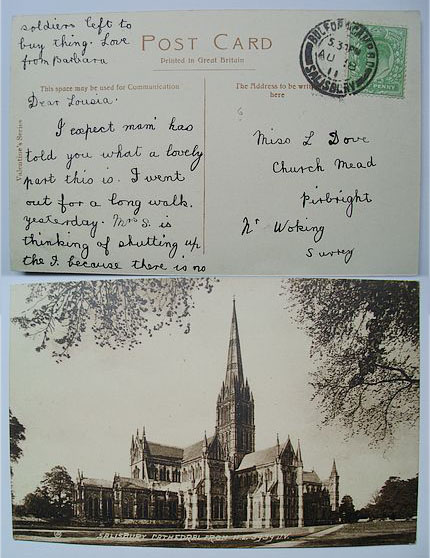 soldiers left to
buy thing. Love
from Barbara
POST CARD
Printed in Great Britain
This space may be used for Communication
The Address to be
here
Valentine's Series
Dear Lousia.
I expect mam has
told you what a lovely
part this is. I went
out for a long walk.
yesterday. Mrs S. is
thinking of shutting up
the I. because there is no
Miss L Dove
Church Mead
Pirbright
Nr Woking
Surrey
BULFORD CAMP
AU
11
SALISBURY
PENNY
SALISBURY CATHEDRAL FROM N.E.
J.V.